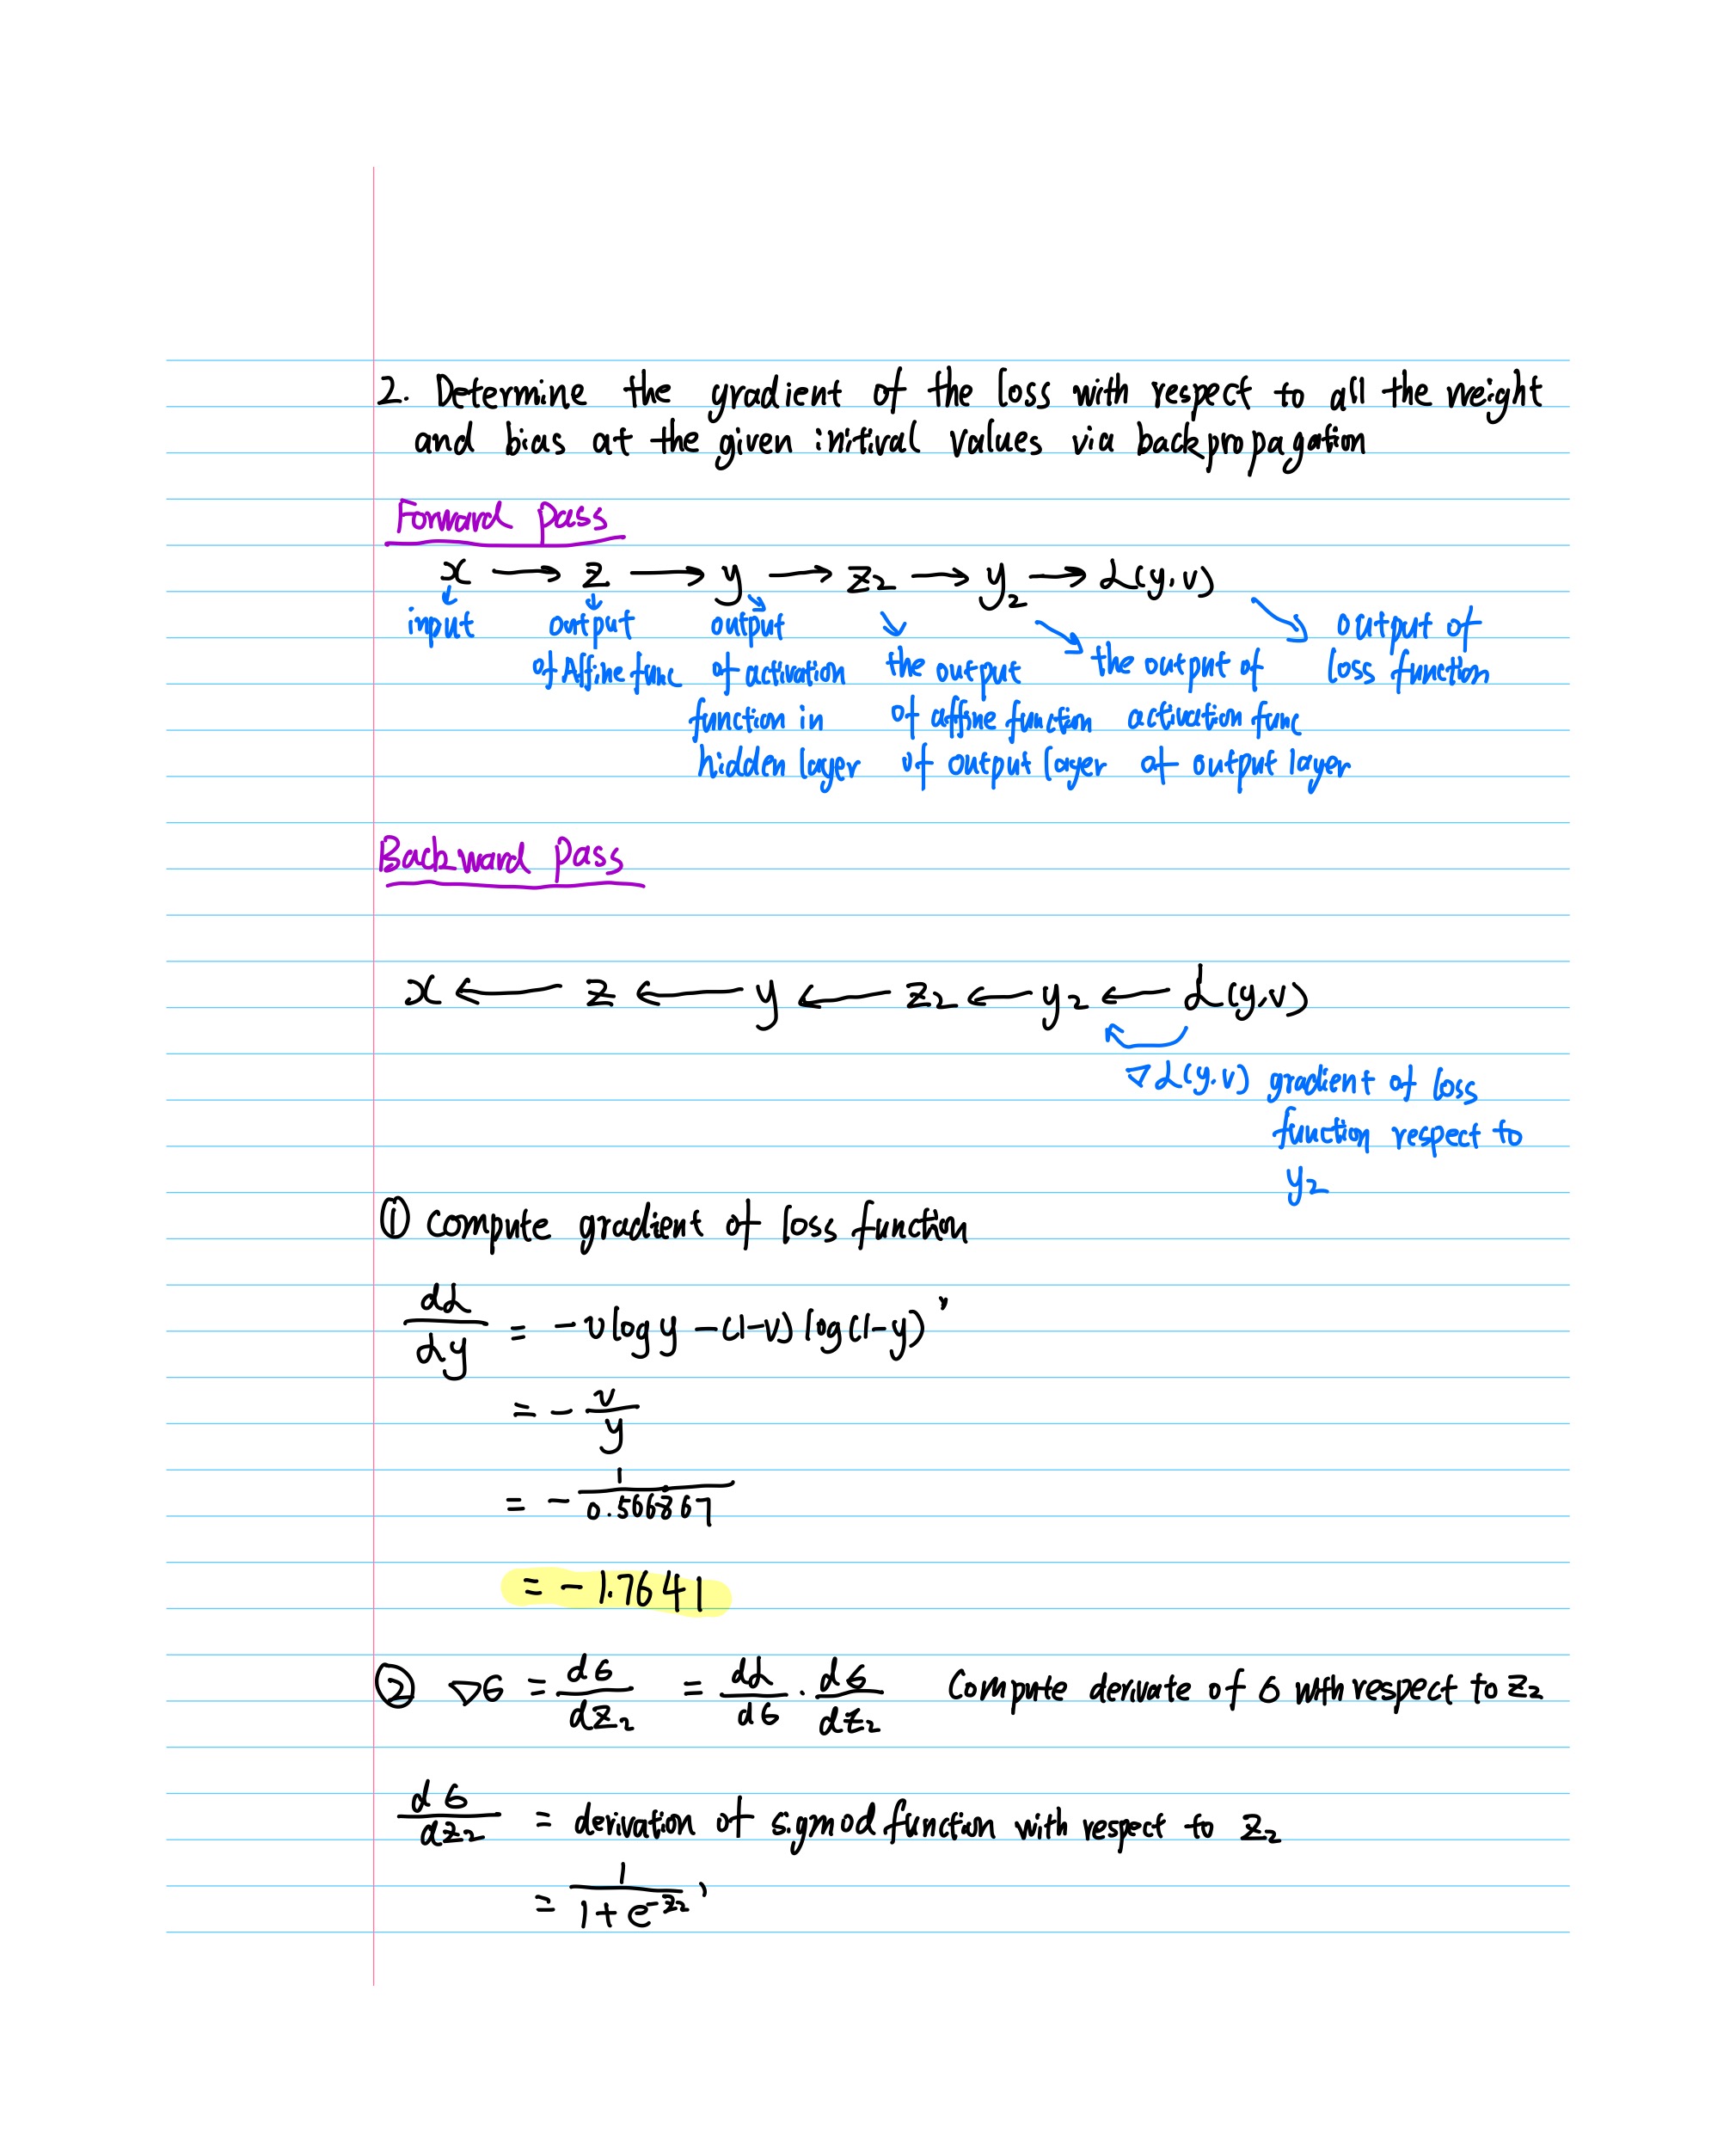 2. Determine the gradient of the loss with respect to all the weight
and bias at the given initival values via backpropagation
Forward pass
x → z → y → z₂ → y₂ → L(y,v)
input
output of Affine func
output of activation function in hidden layer
the output of affine function of output layer
the output of activation func at output layer
output of loss function
Backward pass
x ← z ← y ← z₂ ← y₂ ← L(y,v)
∇L(y,v) gradient of loss
function respect to
y₂
① Compute gradient of loss function
dL/dy = -v log y - (1-v) log(1-y)'
= - v/y
= - 1/0.566867
= - 1.7641
② ∇σ = dσ/dz₂ = dL/dσ · dσ/dz₂ Compute derivate of σ with respect to z₂
dσ/dz₂ = derivation of sigmod function with respect to z₂
= 1/(1+e^-z₂)'